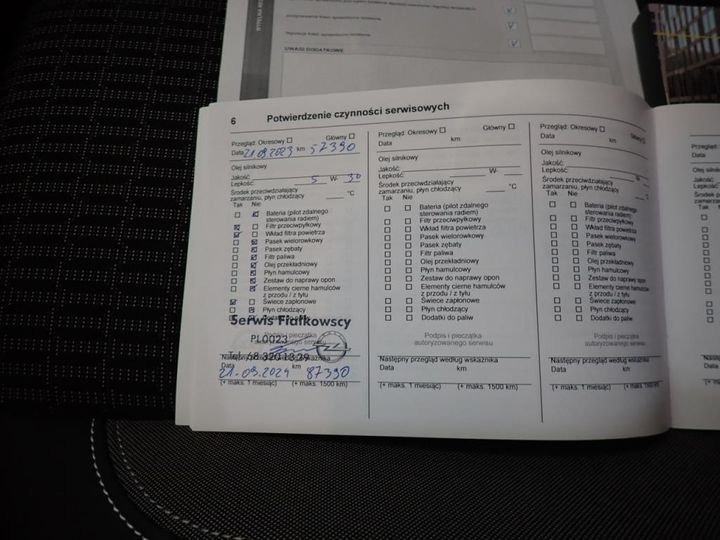 UWAGI DODATKOWE
6 Potwierdzenie czynności serwisowych
Przegląd: Okresowy Główny
Data 21.09.2023 km 57390
Olej silnikowy
Jakość:
Lepkość: 5 W- 30
Środek przeciwdziałający
zamarzaniu, płyn chłodzący °C
Tak Nie
Bateria (pilot zdalnego
sterowania radiem)
Filtr przeciwpyłkowy
Wkład filtra powietrza
Pasek wielorowkowy
Pasek zębaty
Filtr paliwa
Olej przekładniowy
Płyn hamulcowy
Zestaw do naprawy opon
Elementy cierne hamulców
z przodu / z tyłu
Świece zapłonowe
Płyn chłodzący
Dodatki do paliw
Serwis Fiałkowscy
Podpis i pieczątka
PL0023
autoryzowanego serwisu
Tel. 68 320 13 29
Następny przegląd według wskaźnika
Data km
21-09.2024 87390
(+ maks. 1 miesiąc) (+ maks. 1500 km)
Przegląd: Okresowy Główny
Data km
Olej silnikowy
Jakość:
Lepkość: W-
Środek przeciwdziałający
zamarzaniu, płyn chłodzący °C
Tak Nie
Bateria (pilot zdalnego
sterowania radiem)
Filtr przeciwpyłkowy
Wkład filtra powietrza
Pasek wielorowkowy
Pasek zębaty
Filtr paliwa
Olej przekładniowy
Płyn hamulcowy
Zestaw do naprawy opon
Elementy cierne hamulców
z przodu / z tyłu
Świece zapłonowe
Płyn chłodzący
Dodatki do paliw
Podpis i pieczątka
autoryzowanego serwisu
Następny przegląd według wskaźnika
Data km
(+ maks. 1 miesiąc) (+ maks. 1500 km)
Przegląd: Okresowy Główny
Data km
Olej silnikowy
Jakość:
Lepkość: W-
Środek przeciwdziałający
zamarzaniu, płyn chłodzący °C
Tak Nie
Bateria (pilot zdalnego
sterowania radiem)
Filtr przeciwpyłkowy
Wkład filtra powietrza
Pasek wielorowkowy
Pasek zębaty
Filtr paliwa
Olej przekładniowy
Płyn hamulcowy
Zestaw do naprawy opon
Elementy cierne hamulców
z przodu / z tyłu
Świece zapłonowe
Płyn chłodzący
Dodatki do paliw
Podpis i pieczątka
autoryzowanego serwisu
Następny przegląd według wskaźnika
Data km
(+ maks. 1 miesiąc) (+ maks. 1500 km)